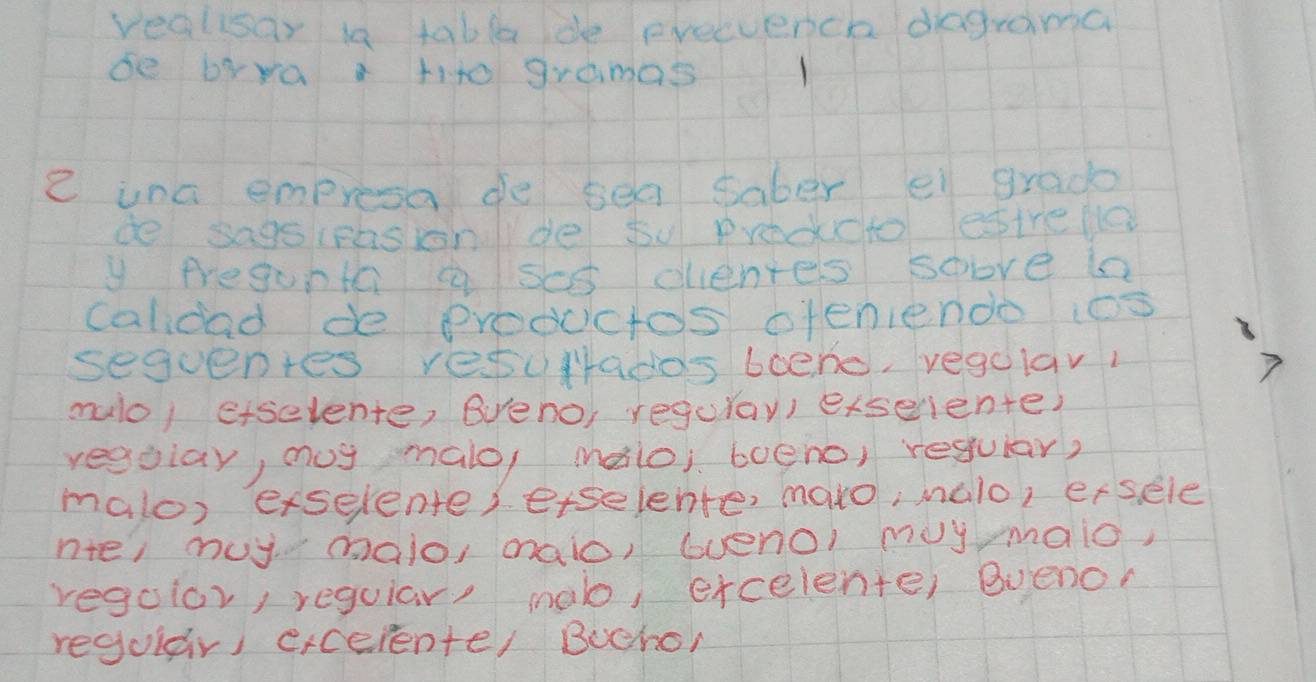 realisar la tabla de frecuencia diagrama
de birra tito gramas
2 una empresa de sea saber el grado
de sagsifasion de su producto estrella
y Pregunta a ses clientes sobre la
calidad de productos oteniendo los
seguentes resultados boeno, regular,
malo, exselente, Bueno, regular, exselente,
regular, muy malo, malo, bueno, regular,
malo, exselente, exselente, malo, malo, exsele
nte, muy malo, malo, bueno, muy malo,
regolar, regular, malo, excelente, Bueno,
regular, excelente, Bueno,